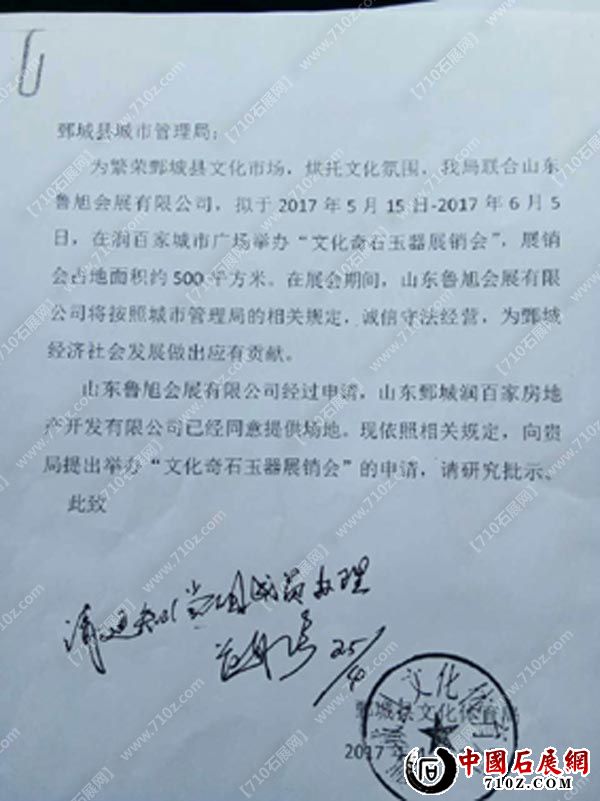 鄄城县城市管理局：
为繁荣鄄城县文化市场，烘托文化氛围，我局联合山东
鲁旭会展有限公司，拟于 2017 年 5 月 15 日-2017 年 6 月 5
日，在润百家城市广场举办“文化奇石玉器展销会”，展销
会占地面积约 500 平方米。在展会期间，山东鲁旭会展有限
公司将按照城市管理局的相关规定，诚信守法经营，为鄄城
经济社会发展做出应有贡献。
山东鲁旭会展有限公司经过申请，山东鄄城润百家房地
产开发有限公司已经同意提供场地。现依照相关规定，向贵
局提出举办“文化奇石玉器展销会”的申请，请研究批示、
此致
办理
25/4
鄄城县文化体育局
2017 年
中國石展網
710Z.COM
【710石展网】
www.710z.com